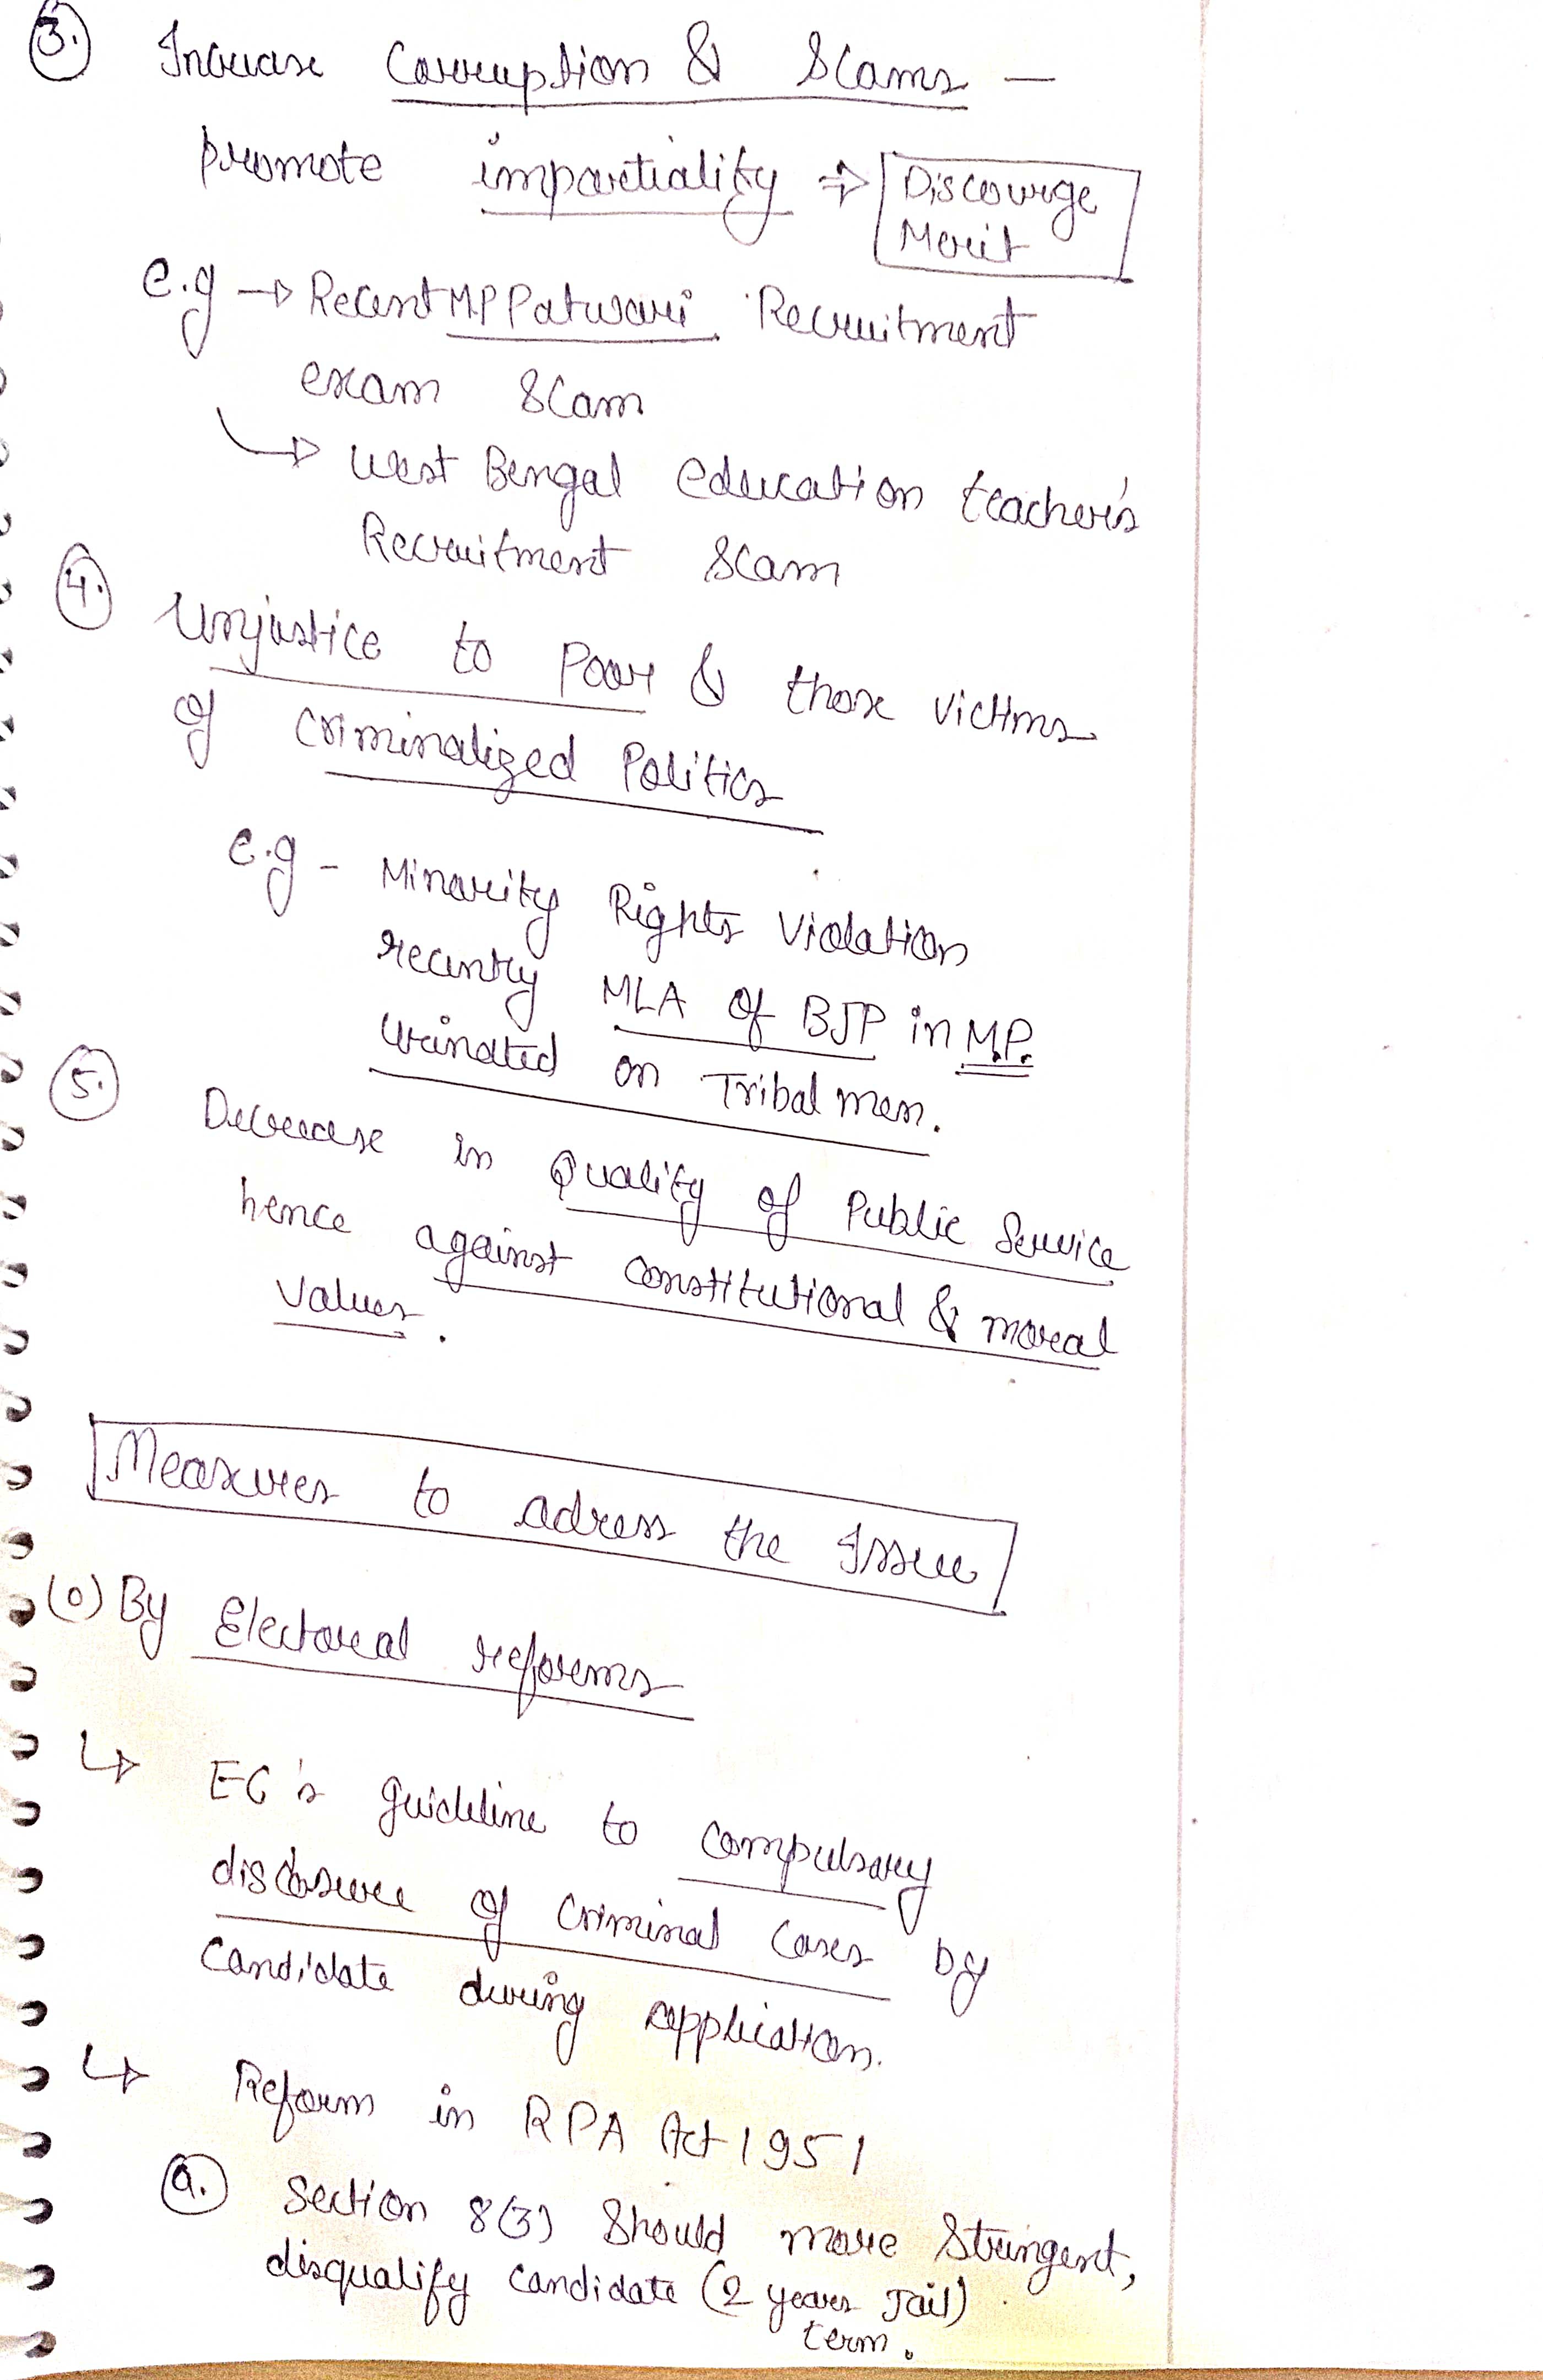 3. Increase Corruption & Scams —
promote impartiality ⇒ Discourge
Merit
e.g → Recent MP Patwari Recruitment
exam Scam
↳ West Bengal education teacher's
Recruitment Scam
4. Unjustice to Poor & those victims
of criminalized Politics
e.g - Minority Rights Violation
recently MLA of BJP in M.P.
Urinated on Tribal men.
5. Decrease in Quality of Public Service
hence against constitutional & moral
values.
Measures to adress the Issue
(0) By Electoral reforms
↳ EC's guideline to compulsary
disclosure of Criminal Cases by
candidate during application.
↳ Reform in RPA Act 1951
a. Section 8(3) Should more Stringent,
disqualify candidate (2 years Jail)
term.